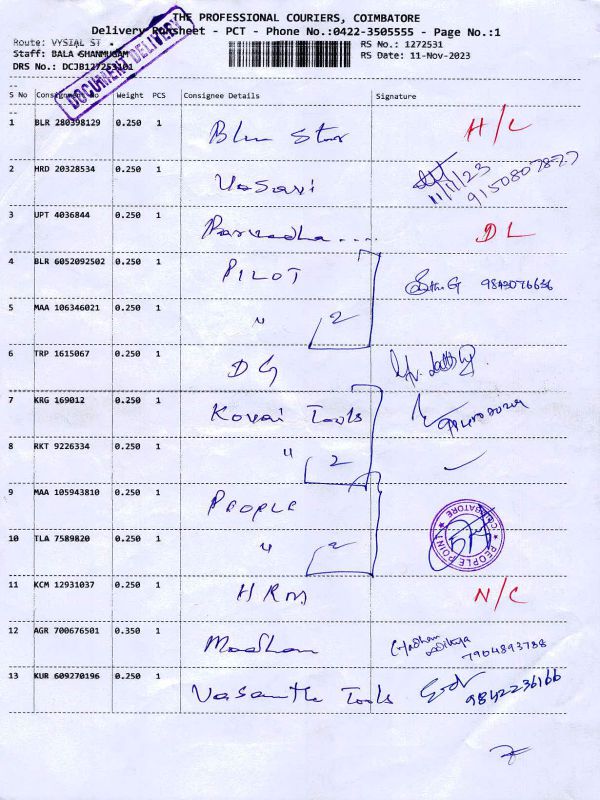 THE PROFESSIONAL COURIERS, COIMBATORE
Delivery Runsheet - PCT - Phone No.:0422-3505555 - Page No.:1
Route: VYSIAL ST
Staff: BALA SHANMUGAM
DRS No.: DCJB127253101
RS No.: 1272531
RS Date: 11-Nov-2023
DOCUMENT DELIVERY
S No Consignment No Weight PCS Consignee Details Signature
1 BLR 280398129 0.250 1 Blue Star H/L
2 HRD 20328534 0.250 1 Vasavi 11/11/23 9150807877
3 UPT 4036844 0.250 1 DL
4 BLR 6052092502 0.250 1 PILOT 9843076636
5 MAA 106346021 0.250 1 " 2
6 TRP 1615067 0.250 1 DG
7 KRG 169012 0.250 1 Kovai Tools
8 RKT 9226334 0.250 1 " 2
9 MAA 105943810 0.250 1 PEOPLE
10 TLA 7589820 0.250 1 " 2
PEOPLE POINT COIMBATORE
11 KCM 12931037 0.250 1 HRM N/C
12 AGR 700676501 0.350 1 Madhan 7904893788
13 KUR 609270196 0.250 1 Vasantha Tools 9842236166